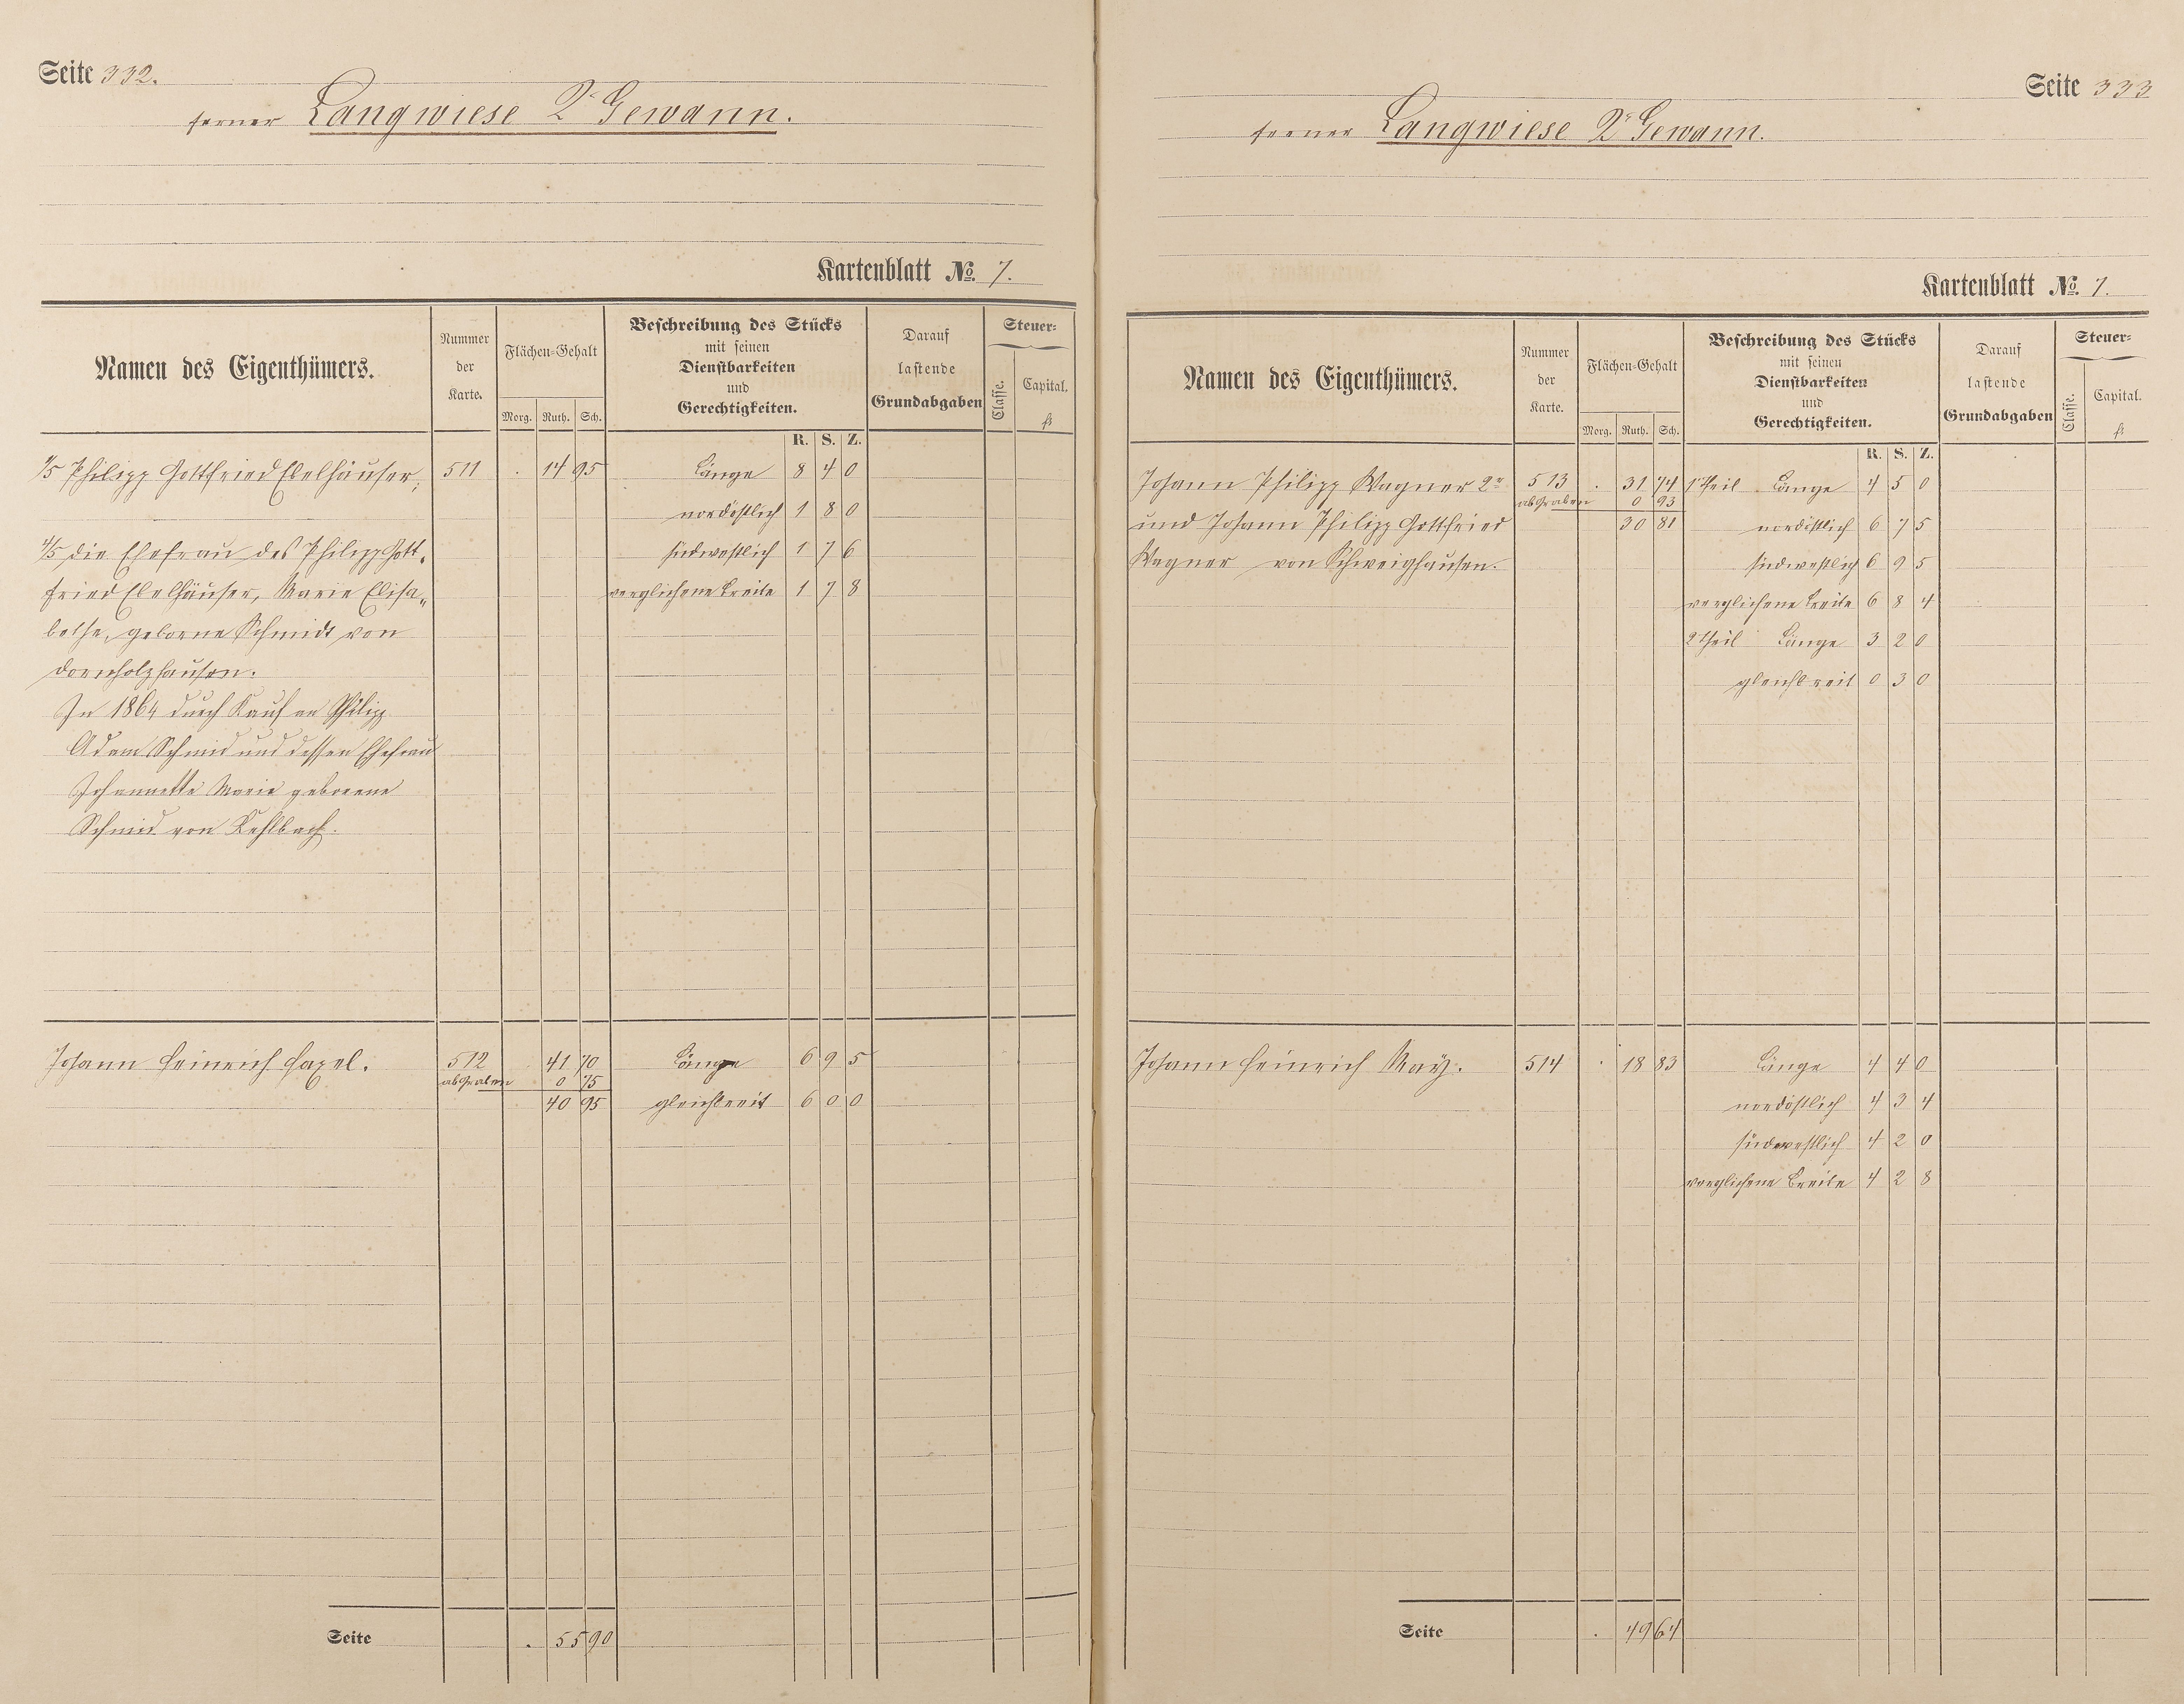 Seite 332.
ferner Langwiese 2r Gewann.
Kartenblatt No. 7.
Namen des Eigenthümers.
Nummer der Karte.
Flächen-Gehalt
Morg. Ruth. Sch.
Beschreibung des Stücks
mit seinen
Dienstbarkeiten
und
Gerechtigkeiten.
Darauf
lastende
Grundabgaben
Steuer=
Classe.
Capital.
fl
R. S. Z.
1/5 Philipp Gottfried Ebelhäuser; 511 . 14 95 Länge 8 4 0
nordöstlich 1 8 0
4/5 die Ehefrau des Philipp Gott- südwestlich 1 7 6
fried Ebelhäuser, Marie Elisa- verglichene Breite 1 7 8
bethe, geborne Schmidt von
Dornholzhausen.
In 1864 durch Kauf an Philipp
Adam Schmid und dessen Ehefrau
Johannette Marie geborene
Schmid von Kehlbach.
Johann Heinrich Hazel. 512 . 41 70 Länge 6 9 5
ab Graben 0 75
40 95 gleichbreit 6 0 0
Seite . 55 90
Seite 333
ferner Langwiese 2r Gewann.
Kartenblatt No. 7.
Namen des Eigenthümers.
Nummer der Karte.
Flächen=Gehalt
Morg. Ruth. Sch.
Beschreibung des Stücks
mit seinen
Dienstbarkeiten
und
Gerechtigkeiten.
Darauf
lastende
Grundabgaben
Steuer=
Classe.
Capital.
fl
R. S. Z.
Johann Philipp Wagner 2r 513 . 31 74 1 Theil Länge 4 5 0
ab Graben 0 93
und Johann Philipp Gottfried 30 81 nordöstlich 6 7 5
Wagner von Schweighausen. südwestlich 6 9 5
verglichene Breite 6 8 4
2 Theil Länge 3 2 0
gleichbreit 0 3 0
Johann Heinrich May. 514 . 18 83 Länge 4 4 0
nordöstlich 4 3 4
südwestlich 4 2 0
verglichene Breite 4 2 8
Seite . 49 64